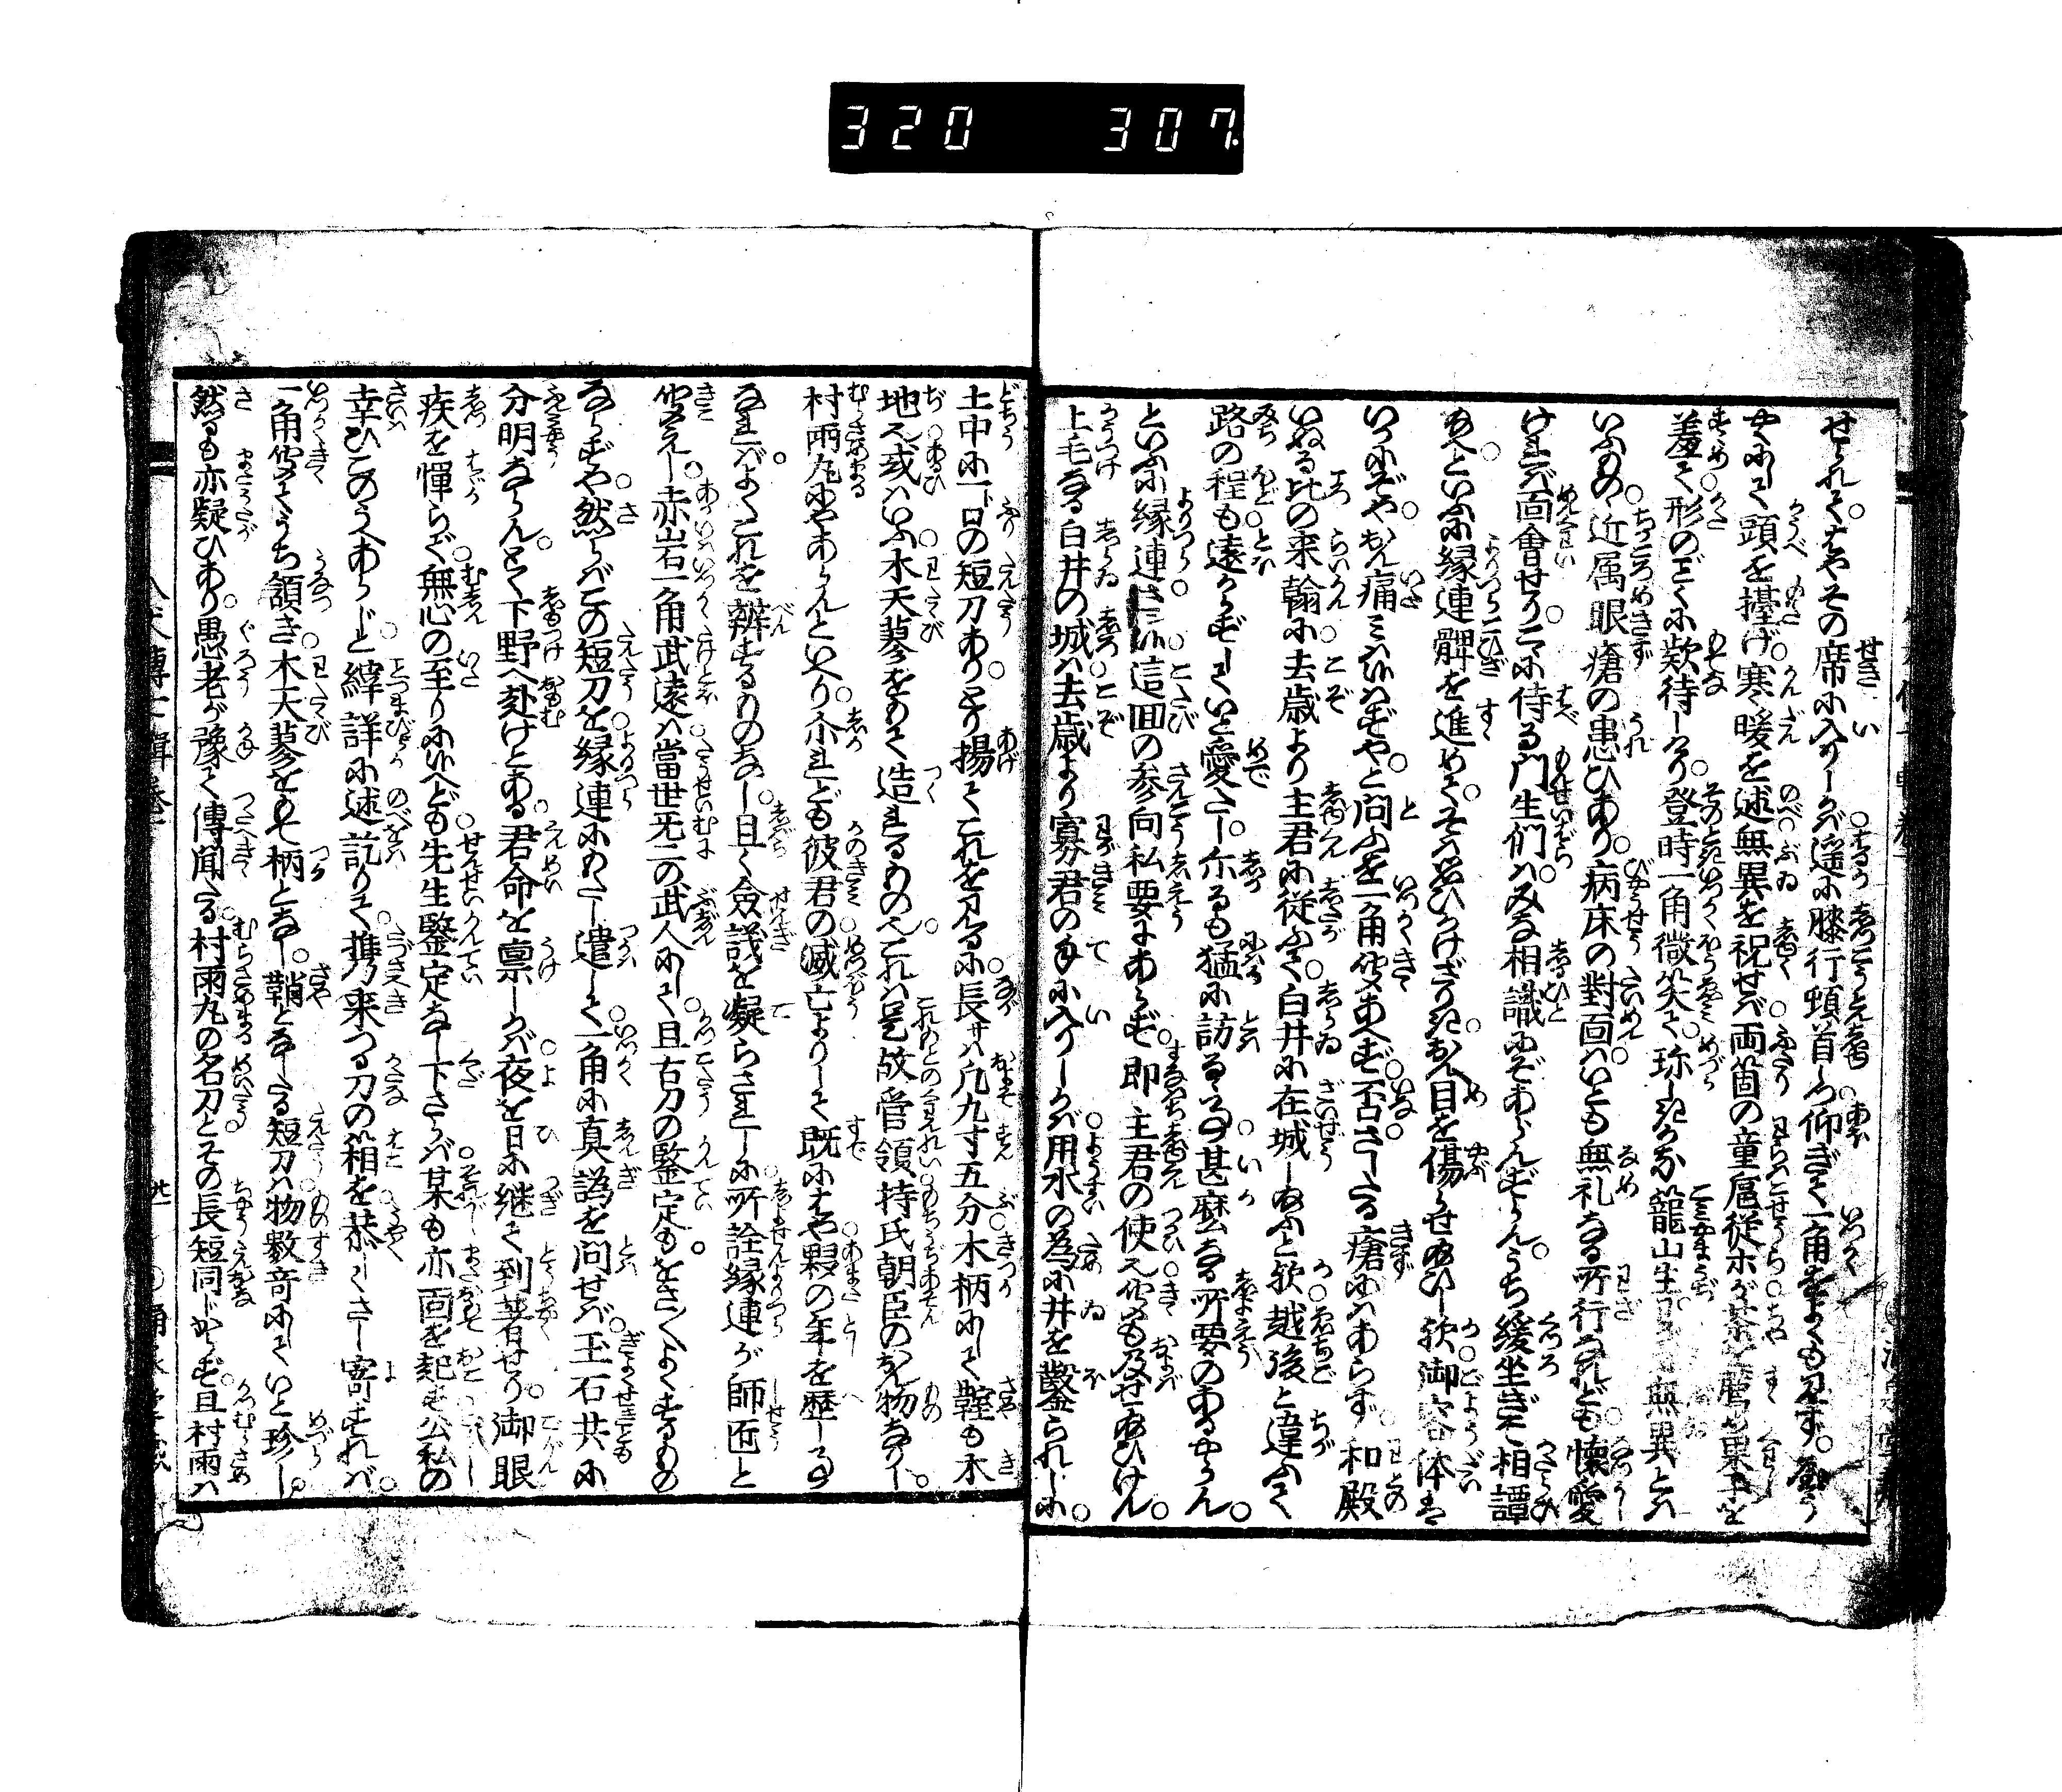 320 307
せられて。はやその席に入りしかば遥に膝行頓首しつ仰ぎて一角をよくも見ず。
やくにして頭を擡げ。寒暖を述無異を祝せば両箇の童扈従ホが茶を薦め果子を
羞めて形のごとくに欵待しけり。登時一角微笑て。珎しきかな籠山生。無異とは
いふものゝ近属眼瘡の患ひあり。病床の對面はいとも無礼なる所行なれども懐愛
ければ面會せり。こゝに侍る門生們は。みな相識にぞあらんずらん。うち緩坐ぎて相譚
給へといふに縁連髀を進めて。そは思ひかけざりき。おん目を傷らせ給ひし欤御容体は
いかにぞや。おん痛みはいかにぞやと問ふを一角聞あへず。否させる瘡にはあらず。和殿
いぬる比の来翰に去歳より主君に従ふて。白井に在城し給ふと欤。越後と違ふて
路の程も遠からずしていと愛たし。尓るも猛に訪るゝは。甚麼なる所要のあるやらん。
といふに縁連さん候。這回の参向私要にあらず。即主君の使也。聞も及せ給ひけん。
上毛なる白井の城は去歳より寡君の手に入りしかば。用水の為に井を鑿られしに。
土中に一口の短刀あり。とり揚てこれを見るに。長サは凡九寸五分木柄にして鞘も木
地也。或はいふ。木天蓼をもて造れるもの也。これは是故管領持氏朝臣のおん物なりし。
村雨丸にやあらんといへり。尓れども彼君の滅亡よりして既にはや夥の年を歴しる
なれば。よくこれを辨ずるものなし。且く僉議を凝らされしに。所詮縁連が師匠と
聞えし。赤岩一角武遠は。當世无二の武人にして。且古刀の鑒定もをさ〳〵よくするもの
ならずや。然らばこの短刀を。縁連にもたし遣して。一角に真偽を問せば。玉石共に
分明ならんとて。下野へ赴けとある。君命を稟しかば。夜を日に継て到着せり。御眼
疾を憚らず。無心の至りに候へども。先生鑒定なし下さらば。某も亦面を起す。公私の
幸ひこのうへあらじと。縡詳に述訖りて。携来つる刀の箱を。恭しくさし寄すれば。
一角聞てうち頷き。木天蓼をもて柄となし。鞘となしたる短刀は。物数奇にていと珍し。
然るも亦疑ひあり。愚老が豫て傳聞たる。村雨丸の名刀と。その長短同じからず。且村雨は